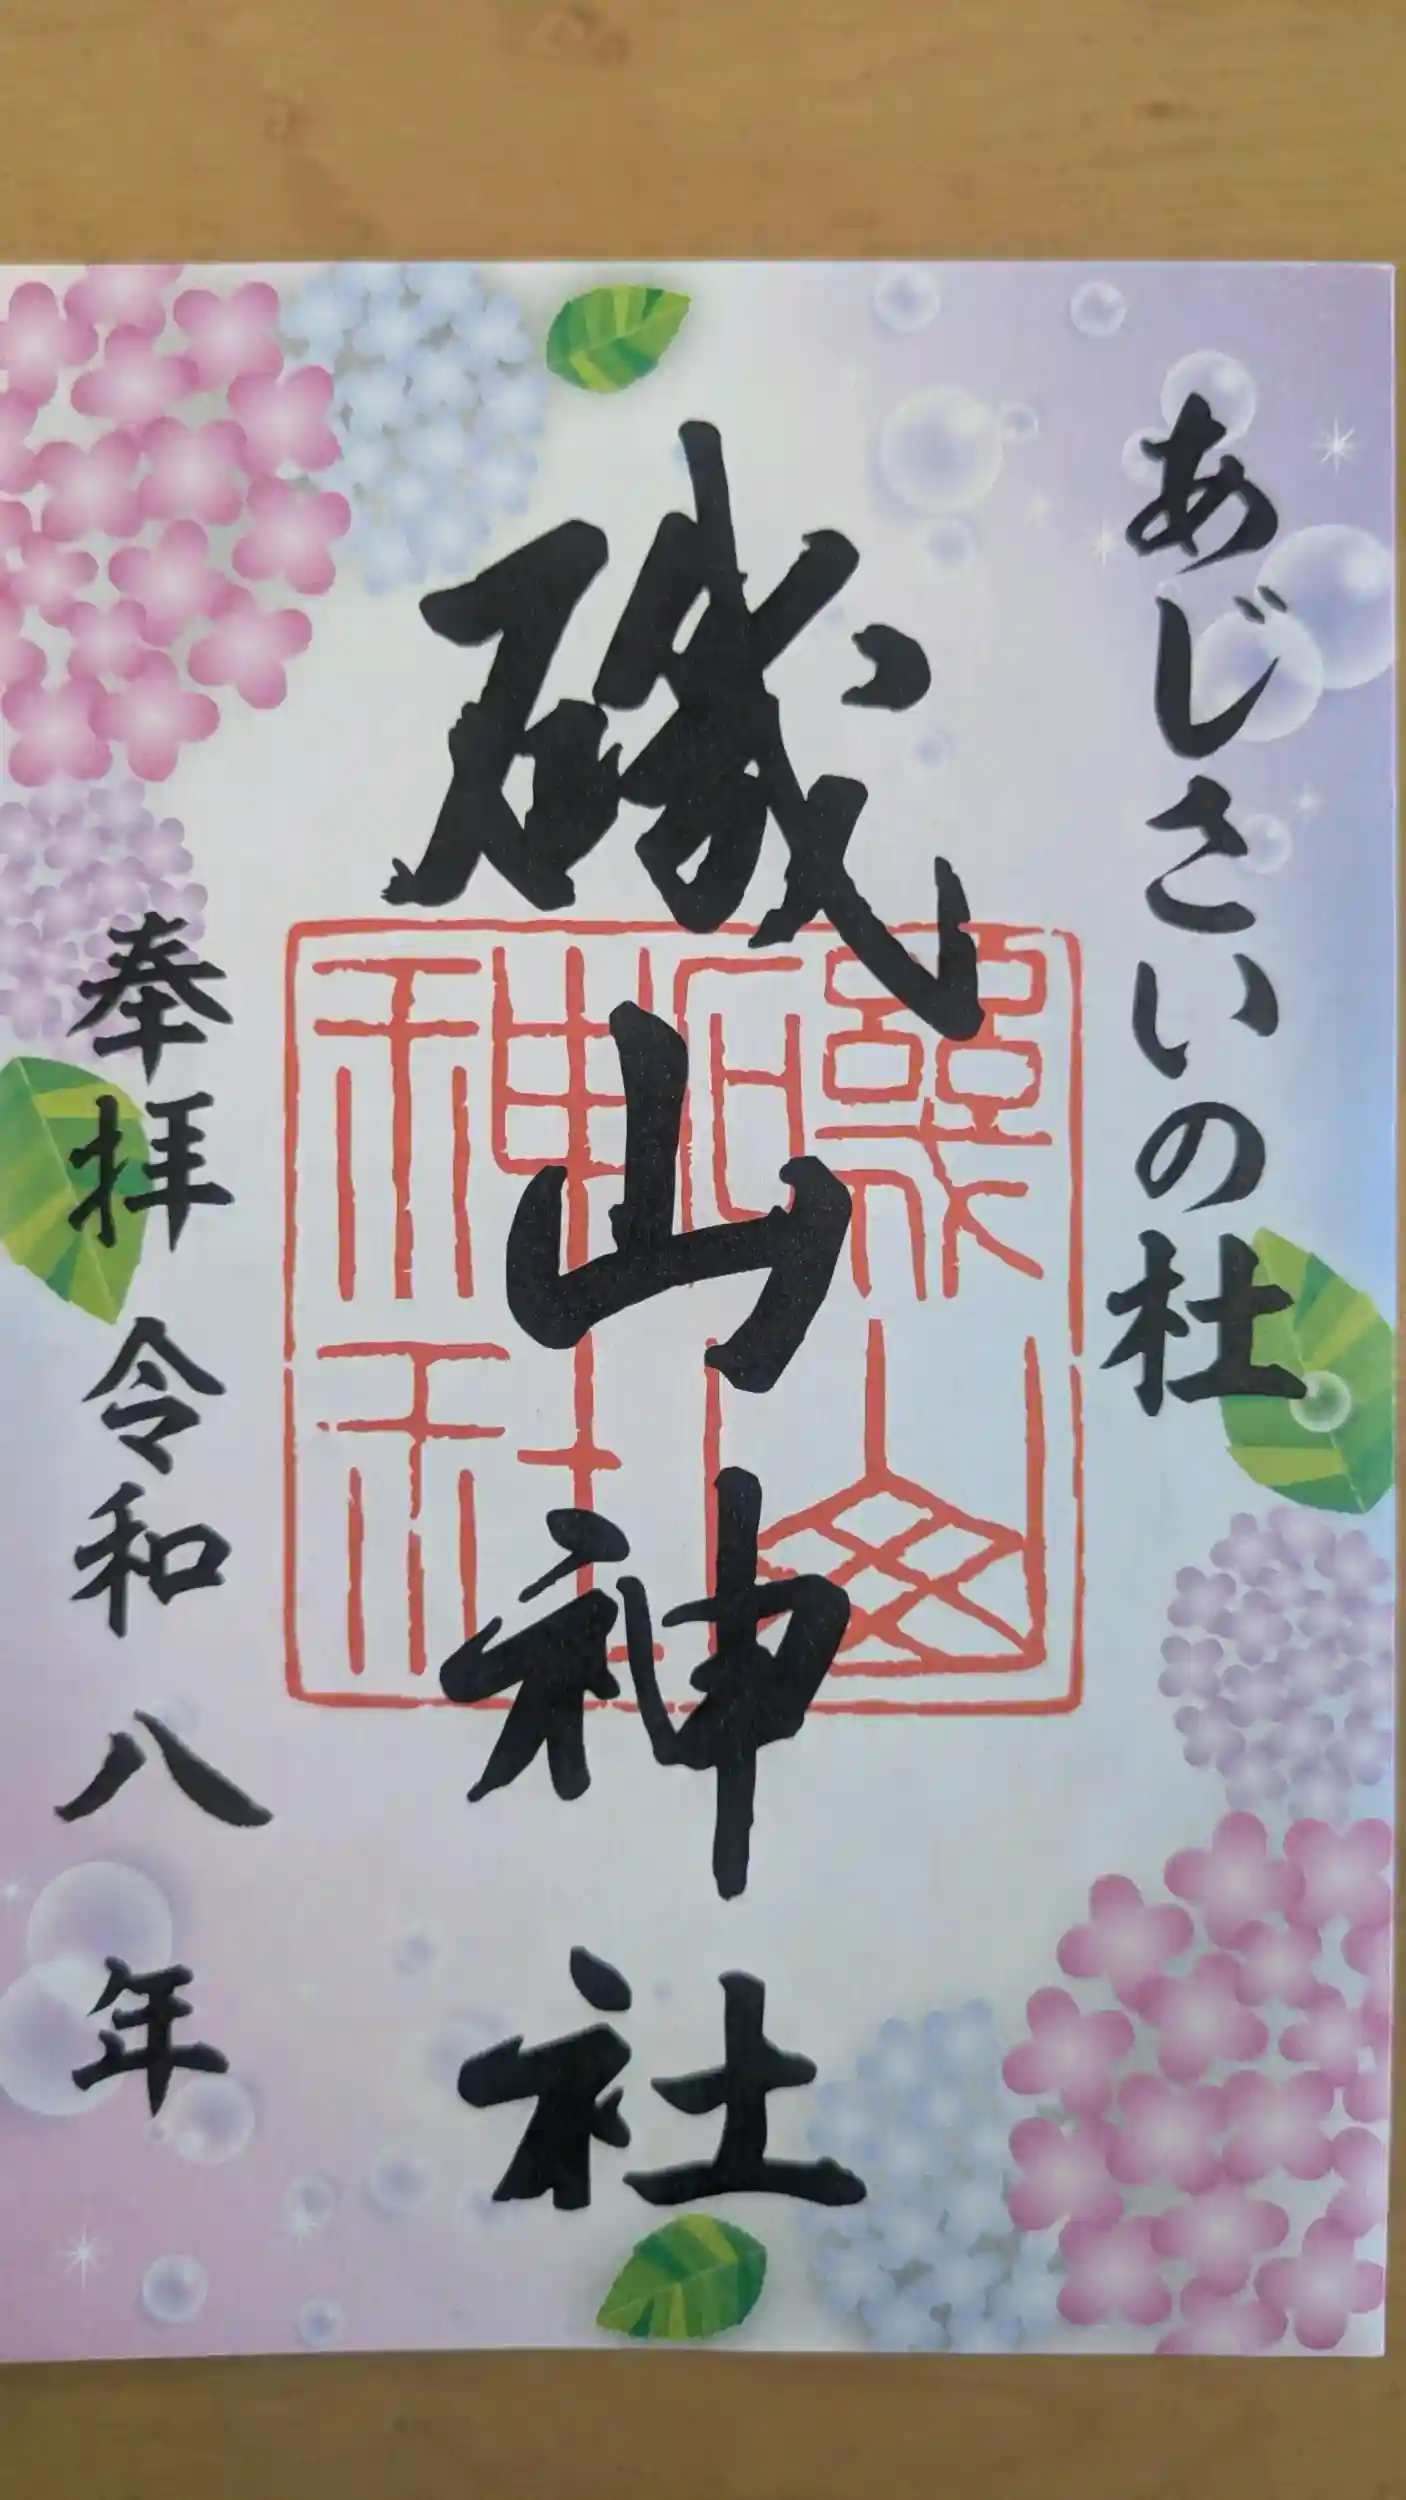 あじさいの杜
磯山神社
奉拝 令和八年
磯山
神社